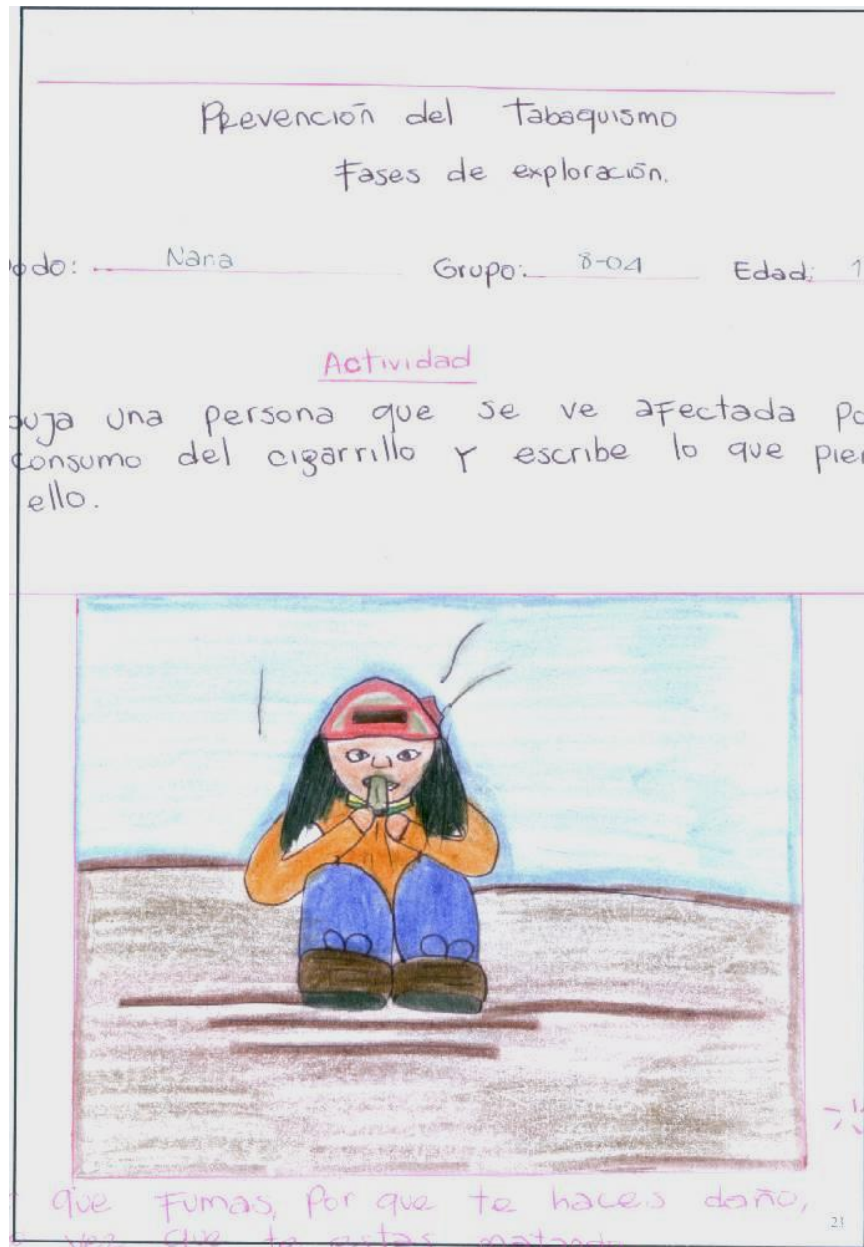 Prevención del Tabaquismo
Fases de exploración.
odo: Nana Grupo: 8-04 Edad: 1
Actividad
uja una persona que se ve afectada Po
consumo del cigarrillo y escribe lo que pien
ello.
que Fumas, Por que te haces daño,
vez que te estas matando
21